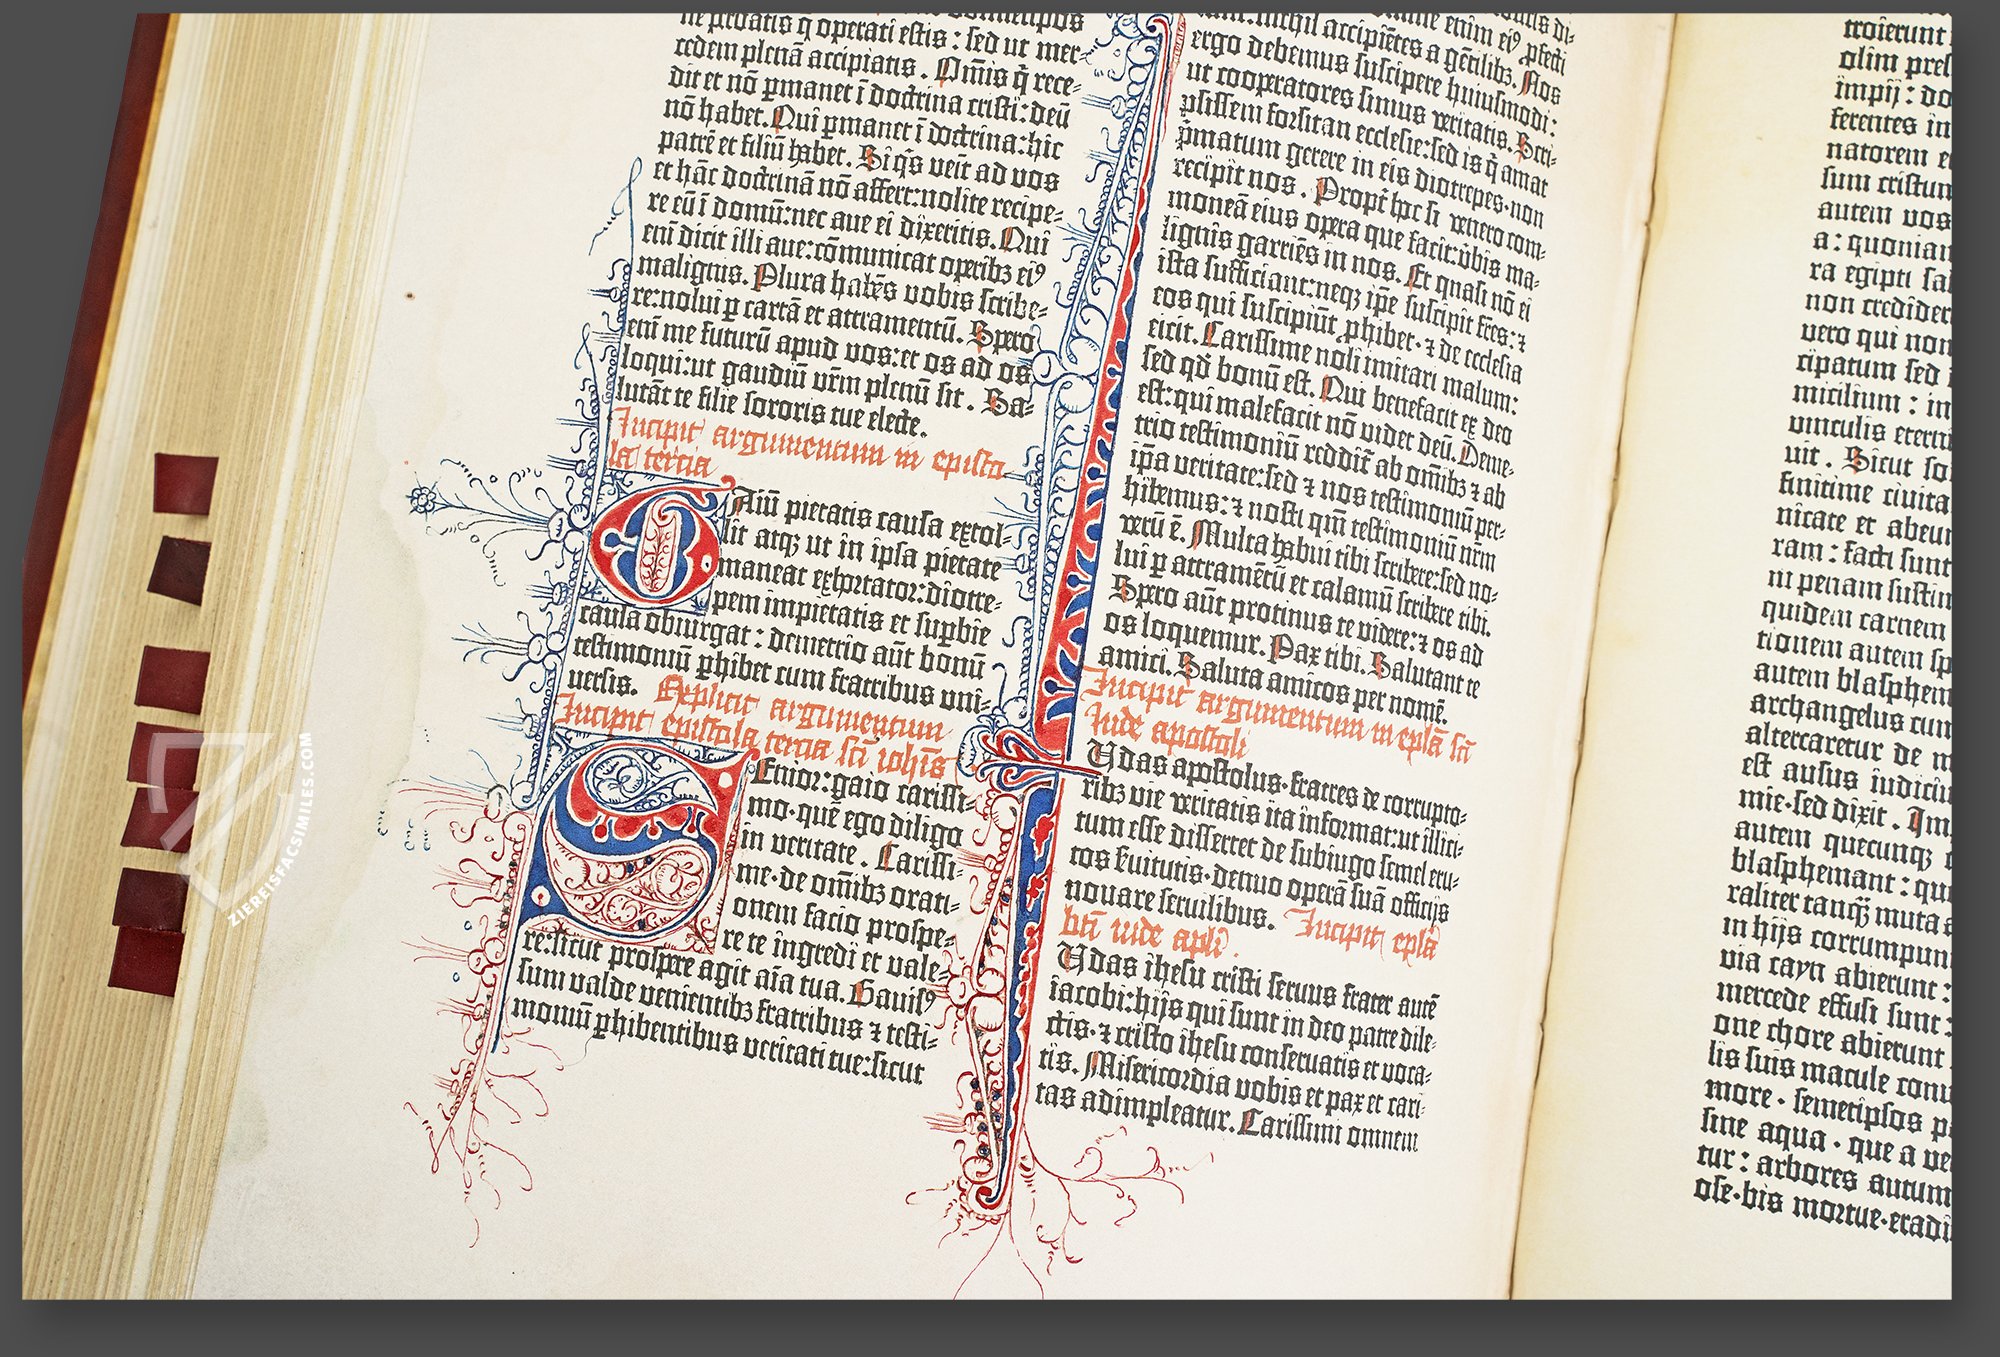 ne perdatis q̄ operati estis : sed ut mer-
cedem plenā accipiatis . Om̄is q̄ rece-
dit et nō ꝑmanet ī doctrina cristi : deū
nō habet . Qui ꝑmanet ī doctrina : hic
patrē et filiū habet . Si q̄s veīt ad vos
et hāc doctrinā nō affert : nolite recipe-
re eū ī domū : nec aue ei dixeritis . Qui
enī dicit illi aue : cōmunicat operibꝫ eiꝰ
malignis . Plura habēs vobis scribe-
re : nolui ꝑ cartā et attramentū . Spero
enī me futurū apud vos : et os ad os
loqui : ut gaudiū vr̄m plenū sit . Sa-
lutāt te filie sororis tue electe .
Incipit argumentum in episto
la tercia
GAiū pietatis causa extol-
lit atqꝫ ut in ipsa pietate
maneat exhortator : diotre-
pem impietatis et suꝑbie
causa obiurgat : demetrio aūt bonū
testimoniū ꝑhibet cum fratribus vni-
uersis . Explicit argumentum
Incipit epistola tercia sc̄i ioh̄is
SEnior : gaio carissi-
mo · quē ego diligo
in veritate . Carissi-
me · de om̄ibꝫ orati-
onem facio prospe-
re te ingredi et vale-
re : sicut prospere agit aīa tua . Gauisꝰ
sum valde venientibꝫ fratribus ⁊ testi-
moniū ꝑhibentibus veritati tue : sicut
nichil accipiētes a gētilibꝫ . Nos
ergo debemus suscipere huiusmodi :
ut cooperatores simus veritatis . Scri-
psissem forsitan ecclesie : sed is q̄ amat
pr̄matum gerere in eis diotrepes · non
recipit nos . Propt̄ hoc si venero com-
moneā eius opera que facit : v̄bis ma-
lignis garriēs in nos . Et quasi nō ei
ista sufficiant : neqꝫ ip̄e suscipit fr̄es : ⁊
eos qui suscipiūt ꝓhibet · ⁊ de ecclesia
eicit . Carissime noli imitari malum :
sed qd̄ bonū est . Qui benefacit ex deo
est : qui malefacit nō videt deū . Deme-
trio testimoniū reddit̄ ab om̄ibꝫ ⁊ ab
ip̄a veritate : sed ⁊ nos testimoniū per-
hibemus : ⁊ nosti qm̄ testimoniū nr̄m
verū ē . Multa habui tibi scribere : sed no-
lui ꝑ attramētū et calamū scribere tibi .
Spero aūt protinus te videre : ⁊ os ad
os loquemur . Pax tibi . Salutant te
amici . Saluta amicos per nomē .
Incipit argumentum in ep̄lā sc̄i
Iude apostoli
IVdas apostolus · fratres de corrupto-
ribꝫ vie veritatis ita informat : ut illici-
tum esse disseret de subiugo semel eru-
tos seruitutis · denuo operā suā officijs
nouare seruilibus . Incipit ep̄la
bt̄i iude apl̄i .
IVdas ih̄esu cristi seruus frater autē
iacobi : hijs qui sunt in deo patre dile-
ctis · ⁊ cristo ih̄esu conseruatis et voca-
tis . Misericordia vobis et pax et cari-
tas adimpleatur . Carissimi omnem
troierunt
olim pres
impij : do
ferentes in
natorem e
sum cristum
autem vos
a : quoniam
ra egipti sa
non credider
vero qui non
cipatum sed
micilium : in
vinculis eterni
uit . Sicut so
finitime ciuita
nicate et abeun
ram : facti sunt
ni penam sustin
quidem carnem
tionem autem sp
autem blasphem
archangelus cum
altercaretur de m
est ausus iudiciu
mie · sed dixit . Im
autem quecunqꝫ
blasphemant : qu
raliter tanqꝫ̄ muta a
in hijs corrumpun
via cayn abierunt :
mercede effusi sunt :
one chore abierunt
lis suis macule conu
more · semetipsos p
sine aqua · que a ve
tur : arbores autum
ose · bis mortue · eradi
ZIEREISFACSIMILES.COM